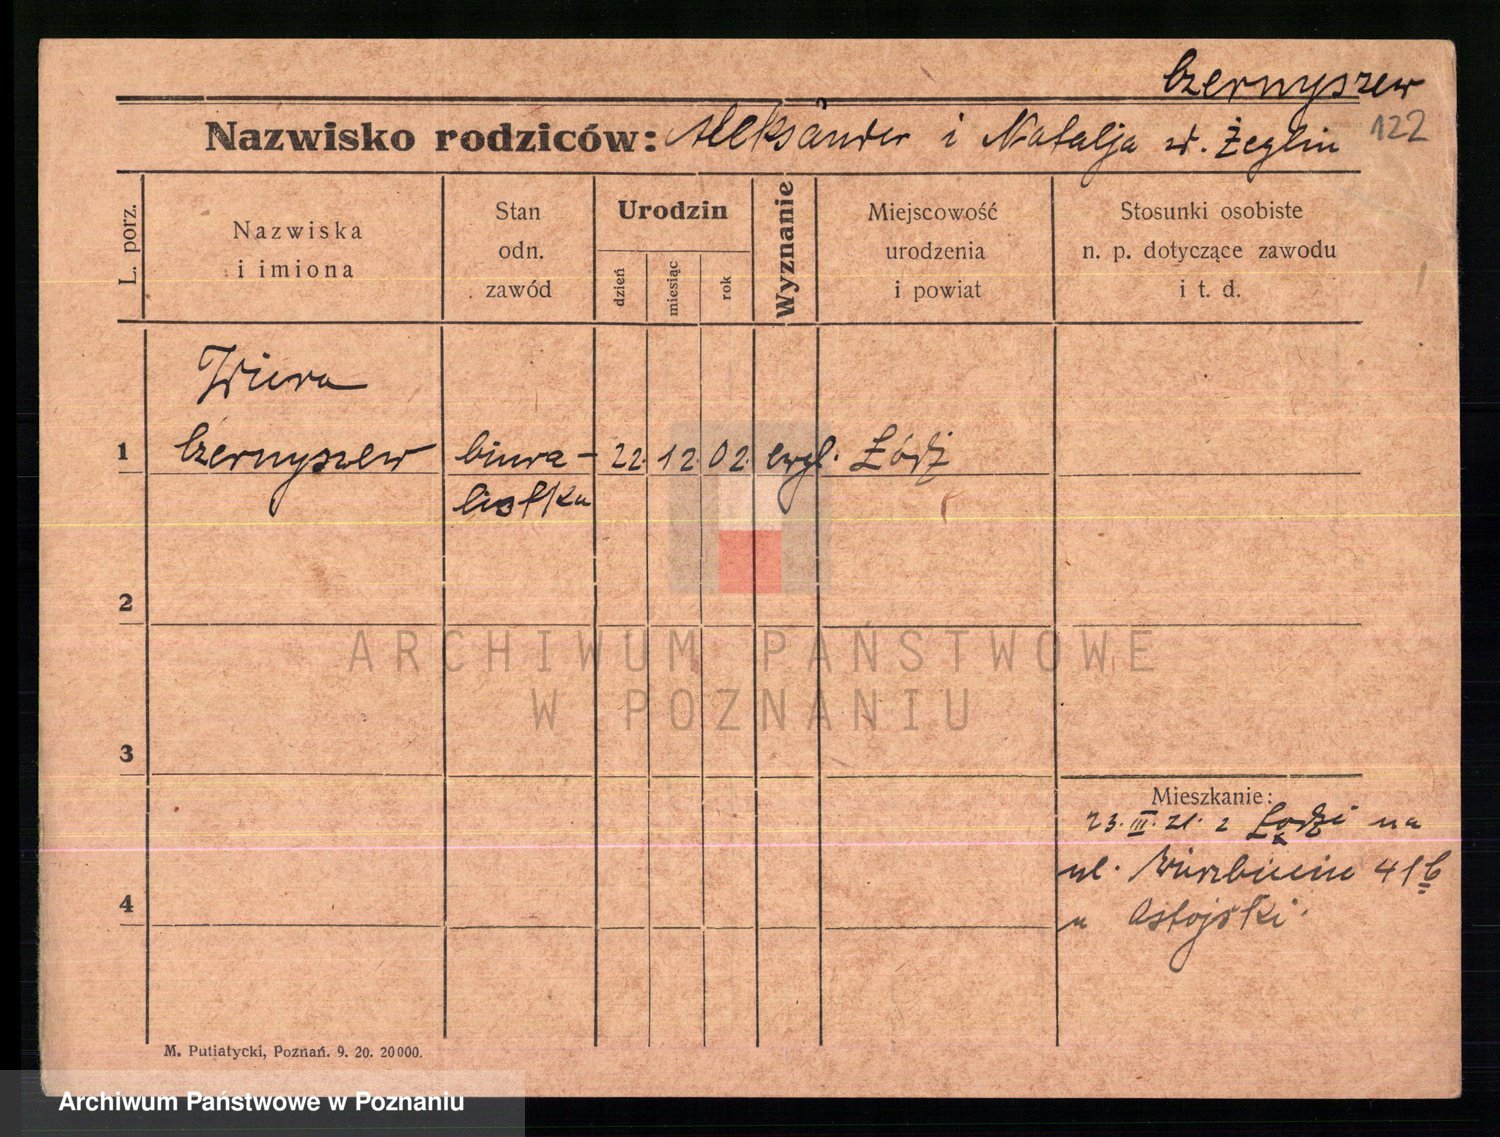 Czernyszew
Nazwisko rodziców: Aleksander i Natalja z d. Żeglin 122
L. porz.
Nazwiska
i imiona
Stan
odn.
zawód
Urodzin
dzień
miesiąc
rok
Wyznanie
Miejscowość
urodzenia
i powiat
Stosunki osobiste
n. p. dotyczące zawodu
i t. d.
Wiera
1 Czernyszew biura- 22. 12. 02. ewgl. Łódź
listka
2
ARCHIWUM PAŃSTWOWE
W POZNANIU
3
Mieszkanie:
23. III. 21. z Łodzi na
ul. 41b
4
u Ostojski
M. Putiatycki, Poznań. 9. 20. 20000.
Archiwum Państwowe w Poznaniu